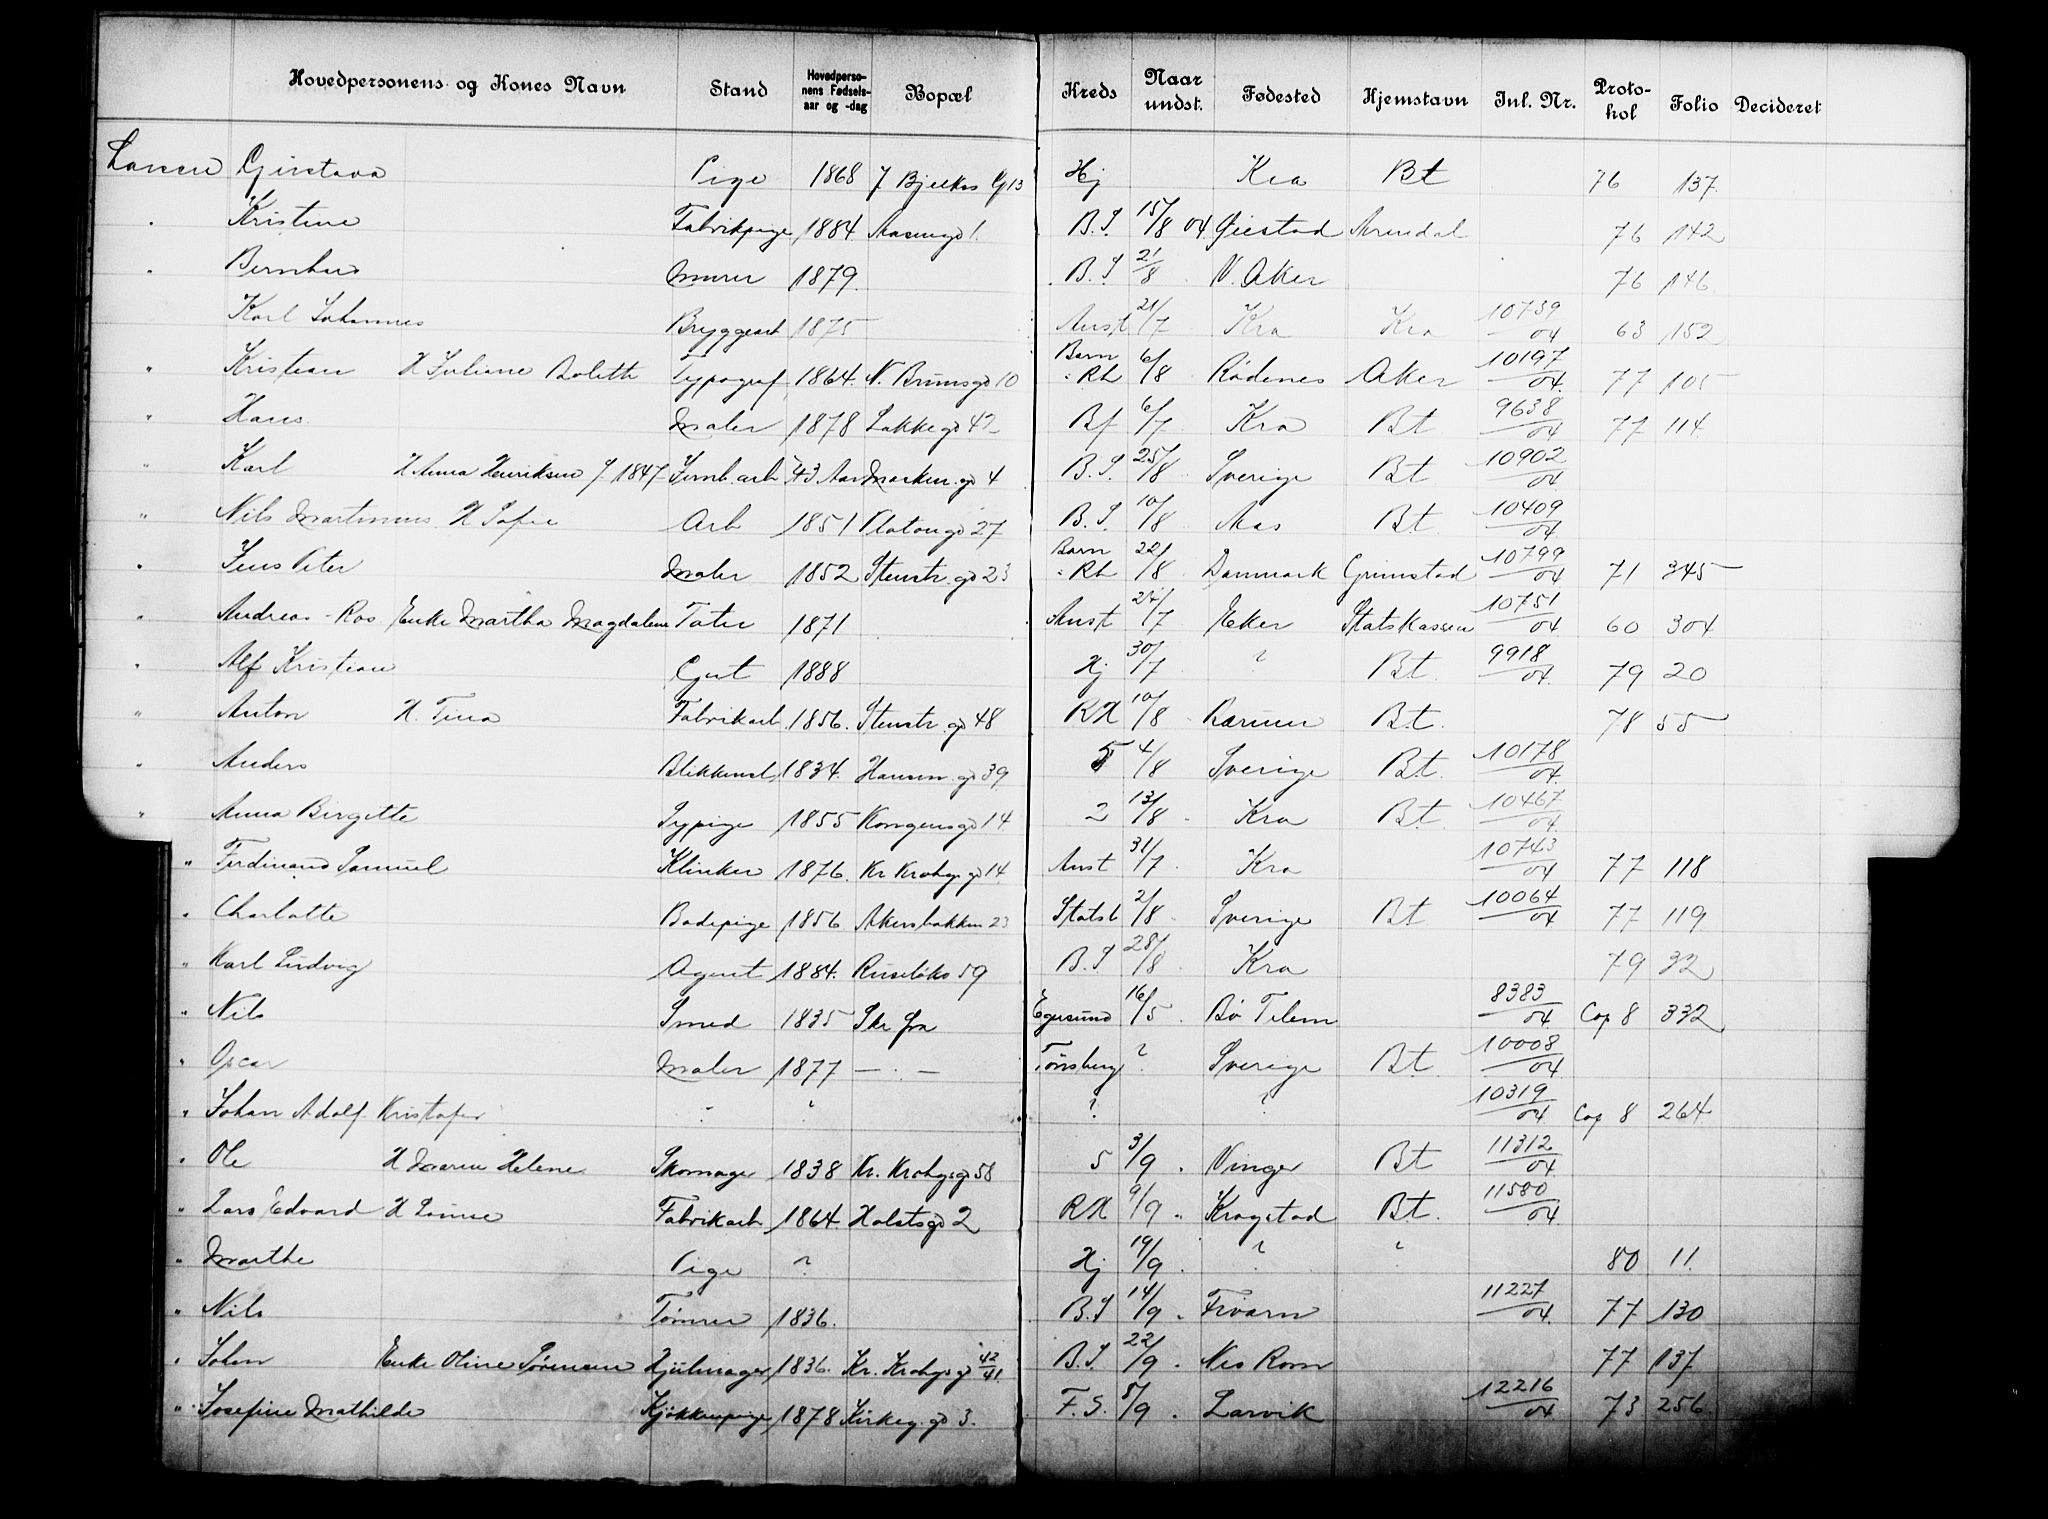 Hovedpersonens og Kones Navn Stand Hovedpersonens Fødselsaar og -dag Bopæl Kreds Naar undst. Fødested Hjemstavn Inl. Nr. Protokol Folio Decideret
Larsen Gustava Pige 1868 7 Bjerkes G 13 Hj Kra Bt 76 137
. Kristine Fabrikpige 1884 Maseng 1. B.S. 15/8 04 Øiestad Arendal 76 142
" Bernhard Murer 1879. B.S 21/8 V. Aker 76 146
Karl Johannes Bryggearb 1875 Anst 21/7 Kra Kra 10739/04 63 152
" Kristian H Juliane Bolette Typograf 1864. N. Brunsgd 10 Barn : Rh 6/8 Rødenes Aker 10197/04 77 105
" Hans Maler 1878 Lakkegd 42 Bf 6/7 Kra Bt 9638/04 77 114
" Karl H Anna Henriksen f. 1847 Jernb. arb 43 Aar Marken. gd 4 B.S. 25/8 Sverige Bt 10902/04
" Nils Martinius H Sofie Arb 1851 Platougd 27 B.S. 10/8 Aas Bt 10409/04
" Jens Peter Maler 1852 Stenstr. gd 23 Barn : Rh 22/8 Danmark Grimstad 10799/04 71 345
" Andreas - Ros Enke Martha Magdalene Tater 1871 Anst 24/7 Eker Statskassen 10751/04 60 304
" Alf Kristian Gut 1888 Hj 30/7 ? Bt 9918/04 79 20
" Anton H. Tina Fabrikarb 1856. Stenstr. gd 48 RH 10/8 Bærum Bt. 78 55
" Anders Blikkensl. 1834. Hausm. gd 39 5 4/8 Sverige Bt. 10178/04
" Anna Birgitte Sypige 1855 Kongensgd 14 2 13/8 Kra Bt. 10467/04
" Ferdinand Samuel Klinker 1876. Kr Krohgs gd 14 Anst 31/7 Kra 10743/04 77 118
" Charlotte Badepige 1856 Akersbakken 23 Statsb 2/8 Sverige Bt 10064/04 77 119
" Karl Ludvig Agent 1884. Ruseløks 59 B.S 28/8 Kra 79 32
" Nils Smed 1835 Ikr fra Egersund 16/5 Bø Telem 8383/04 Cop 8 332
" Oscar Maler 1877 — . — Tønsberg ? Sverige Bt. 10008/04
" Johan Adolf Kristofer ? ? ? ? 10319/04 Cop 8 264
" Ole H Maren Helene Skomager 1838 Kr. Krohgsgd 58 5 3/9 Vinger Bt 11312/04
" Lars Edvard H Louise Fabrikarb 1864. Holstsgd 2 RH 9/9 Kragstad Bt. 11580/04
" Marthe Pige ? Hj 19/9 ? ? 80 11.
" Nils Tømrer 1836. B.S 14/9 11227/04 77 130
" Johan Enke Oline Sørensen Hjulmager 1836. Kr. Krohgs gd 42/41 B.S. 22/9 Nes Rom 77 137
" Josefine Mathilde Kjøkkenpige 1878 Kirkeg. gd 3. F.S. 5/9 Larvik 12216/04 73 256.